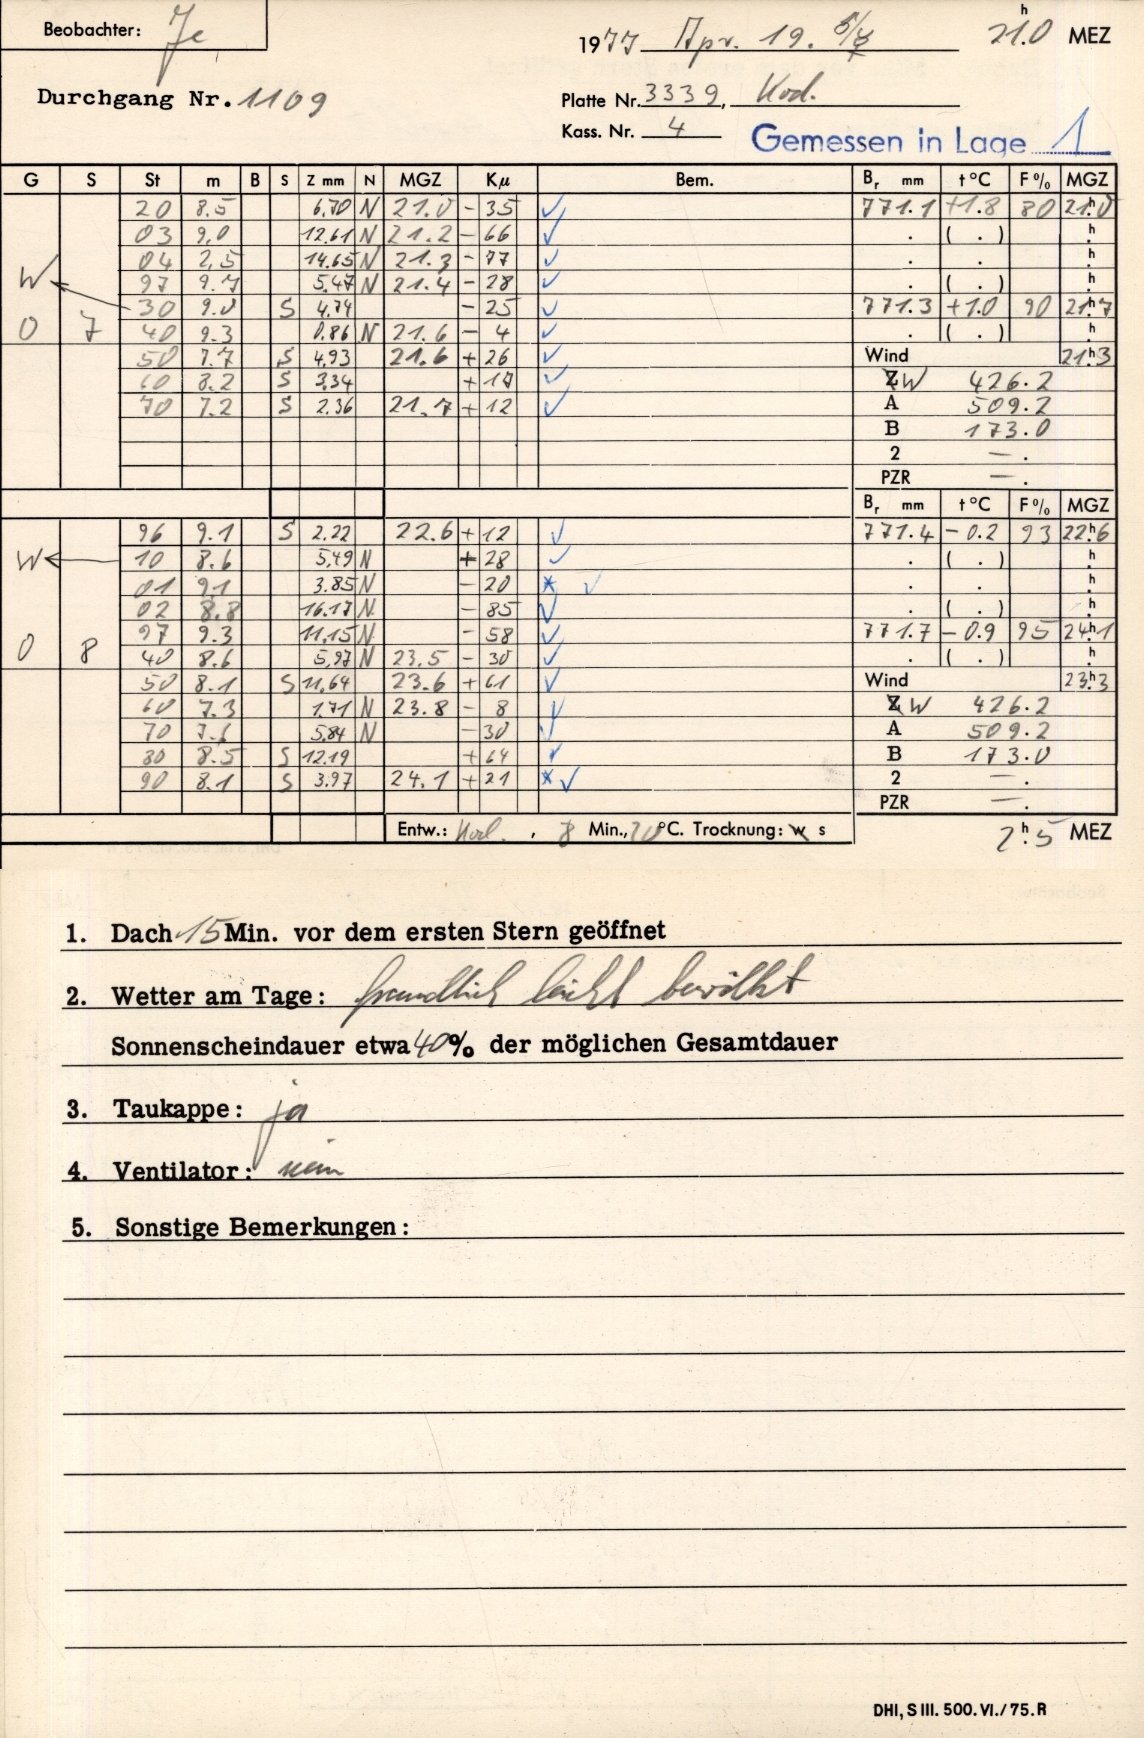 Beobachter: Je
1977 Apr. 19. 21h.0 MEZ
Durchgang Nr. 1109
Platte Nr. 3339, Kod.
Kass. Nr. 4
Gemessen in Lage 1
G S St m B S Z mm N MGZ Kμ Bem. Br mm t °C F % MGZ
20 8.5 6.70 N 21.0 - 35 ✓ 771.1 +1.8 80 21h.0
03 9.0 12.61 N 21.2 - 66 ✓ . ( . ) h.
04 2.5 14.65 N 21.3 - 77 ✓ . . h.
W 97 9.7 5.47 N 21.4 - 28 ✓ . ( . ) h.
30 9.0 S 4.74 - 25 ✓ 771.3 +1.0 90 21h.7
0 7 40 9.3 0.86 N 21.6 - 4 ✓ . ( . ) h.
50 7.7 S 4.93 21.6 + 26 ✓ Wind 21h.3
60 8.2 S 3.34 + 17 ✓ W 426.2
70 7.2 S 2.36 21.7 + 12 ✓ A 509.2
B 173.0
2 — .
PZR — .
Br mm t °C F % MGZ
96 9.1 S 2.22 22.6 + 12 ✓ 771.4 - 0.2 93 22h.6
W 10 8.6 5.49 N + 28 ✓ . ( . ) h.
01 9.1 3.85 N - 20 * ✓ . . h.
02 8.8 16.17 N - 85 ✓ . ( . ) h.
97 9.3 11.15 N - 58 ✓ 771.7 - 0.9 95 24h.1
0 8 40 8.6 5.97 N 23.5 - 30 ✓ . ( . ) h.
50 8.1 S 11.64 23.6 + 61 ✓ Wind 23h.3
60 7.3 1.71 N 23.8 - 8 ✓ W 426.2
70 7.6 5.84 N - 30 ✓ A 509.2
80 8.5 S 12.19 + 64 ✓ B 173.0
90 8.1 S 3.97 24.1 + 21 * ✓ 2 — .
PZR — .
Entw.: Kod. , 8 Min., 20 °C. Trocknung: w s 2h.5 MEZ
1. Dach 15 Min. vor dem ersten Stern geöffnet
2. Wetter am Tage: freundlich leicht bewölkt
Sonnenscheindauer etwa 40% der möglichen Gesamtdauer
3. Taukappe: ja
4. Ventilator: nein
5. Sonstige Bemerkungen:
DHI, S III. 500. VI./75. R